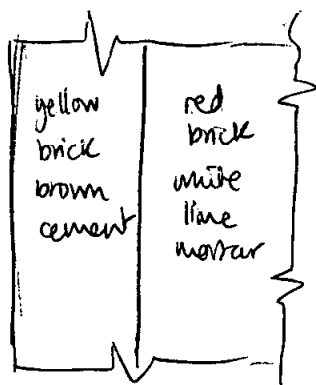 yellow
brick
brown
cement
red
brick
white
lime
mortar